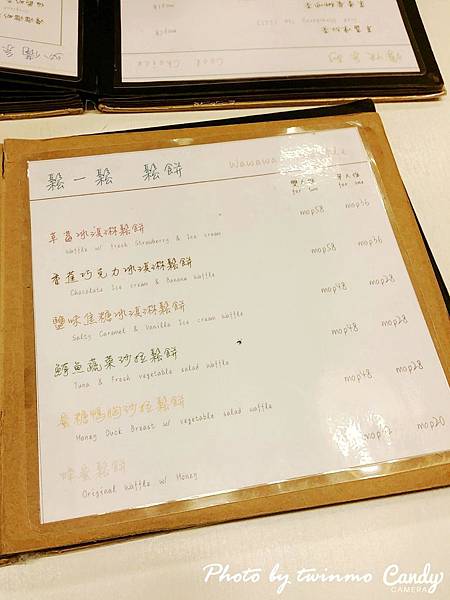 鬆一鬆 鬆餅 Wawawa
雙人份 單人份
for two for one
草莓冰淇淋鬆餅 mop58 mop36
Waffle w/ fresh Strawberry & Ice cream
香蕉巧克力冰淇淋鬆餅 mop58 mop36
Chocolate Ice cream & Banana Waffle
鹽味焦糖冰淇淋鬆餅 mop48 mop28
Salty Caramel & Vanilla Ice cream waffle
鮪魚蔬菜沙拉鬆餅 mop48 mop28
Tuna & Fresh vegetable salad waffle
蜜糖鴨胸沙拉鬆餅 mop48 mop28
Honey Duck Breast w/ vegetable salad waffle
蜂蜜鬆餅 mop20
Original Waffle w/ Honey
Photo by twinmo Candy
CAMERA